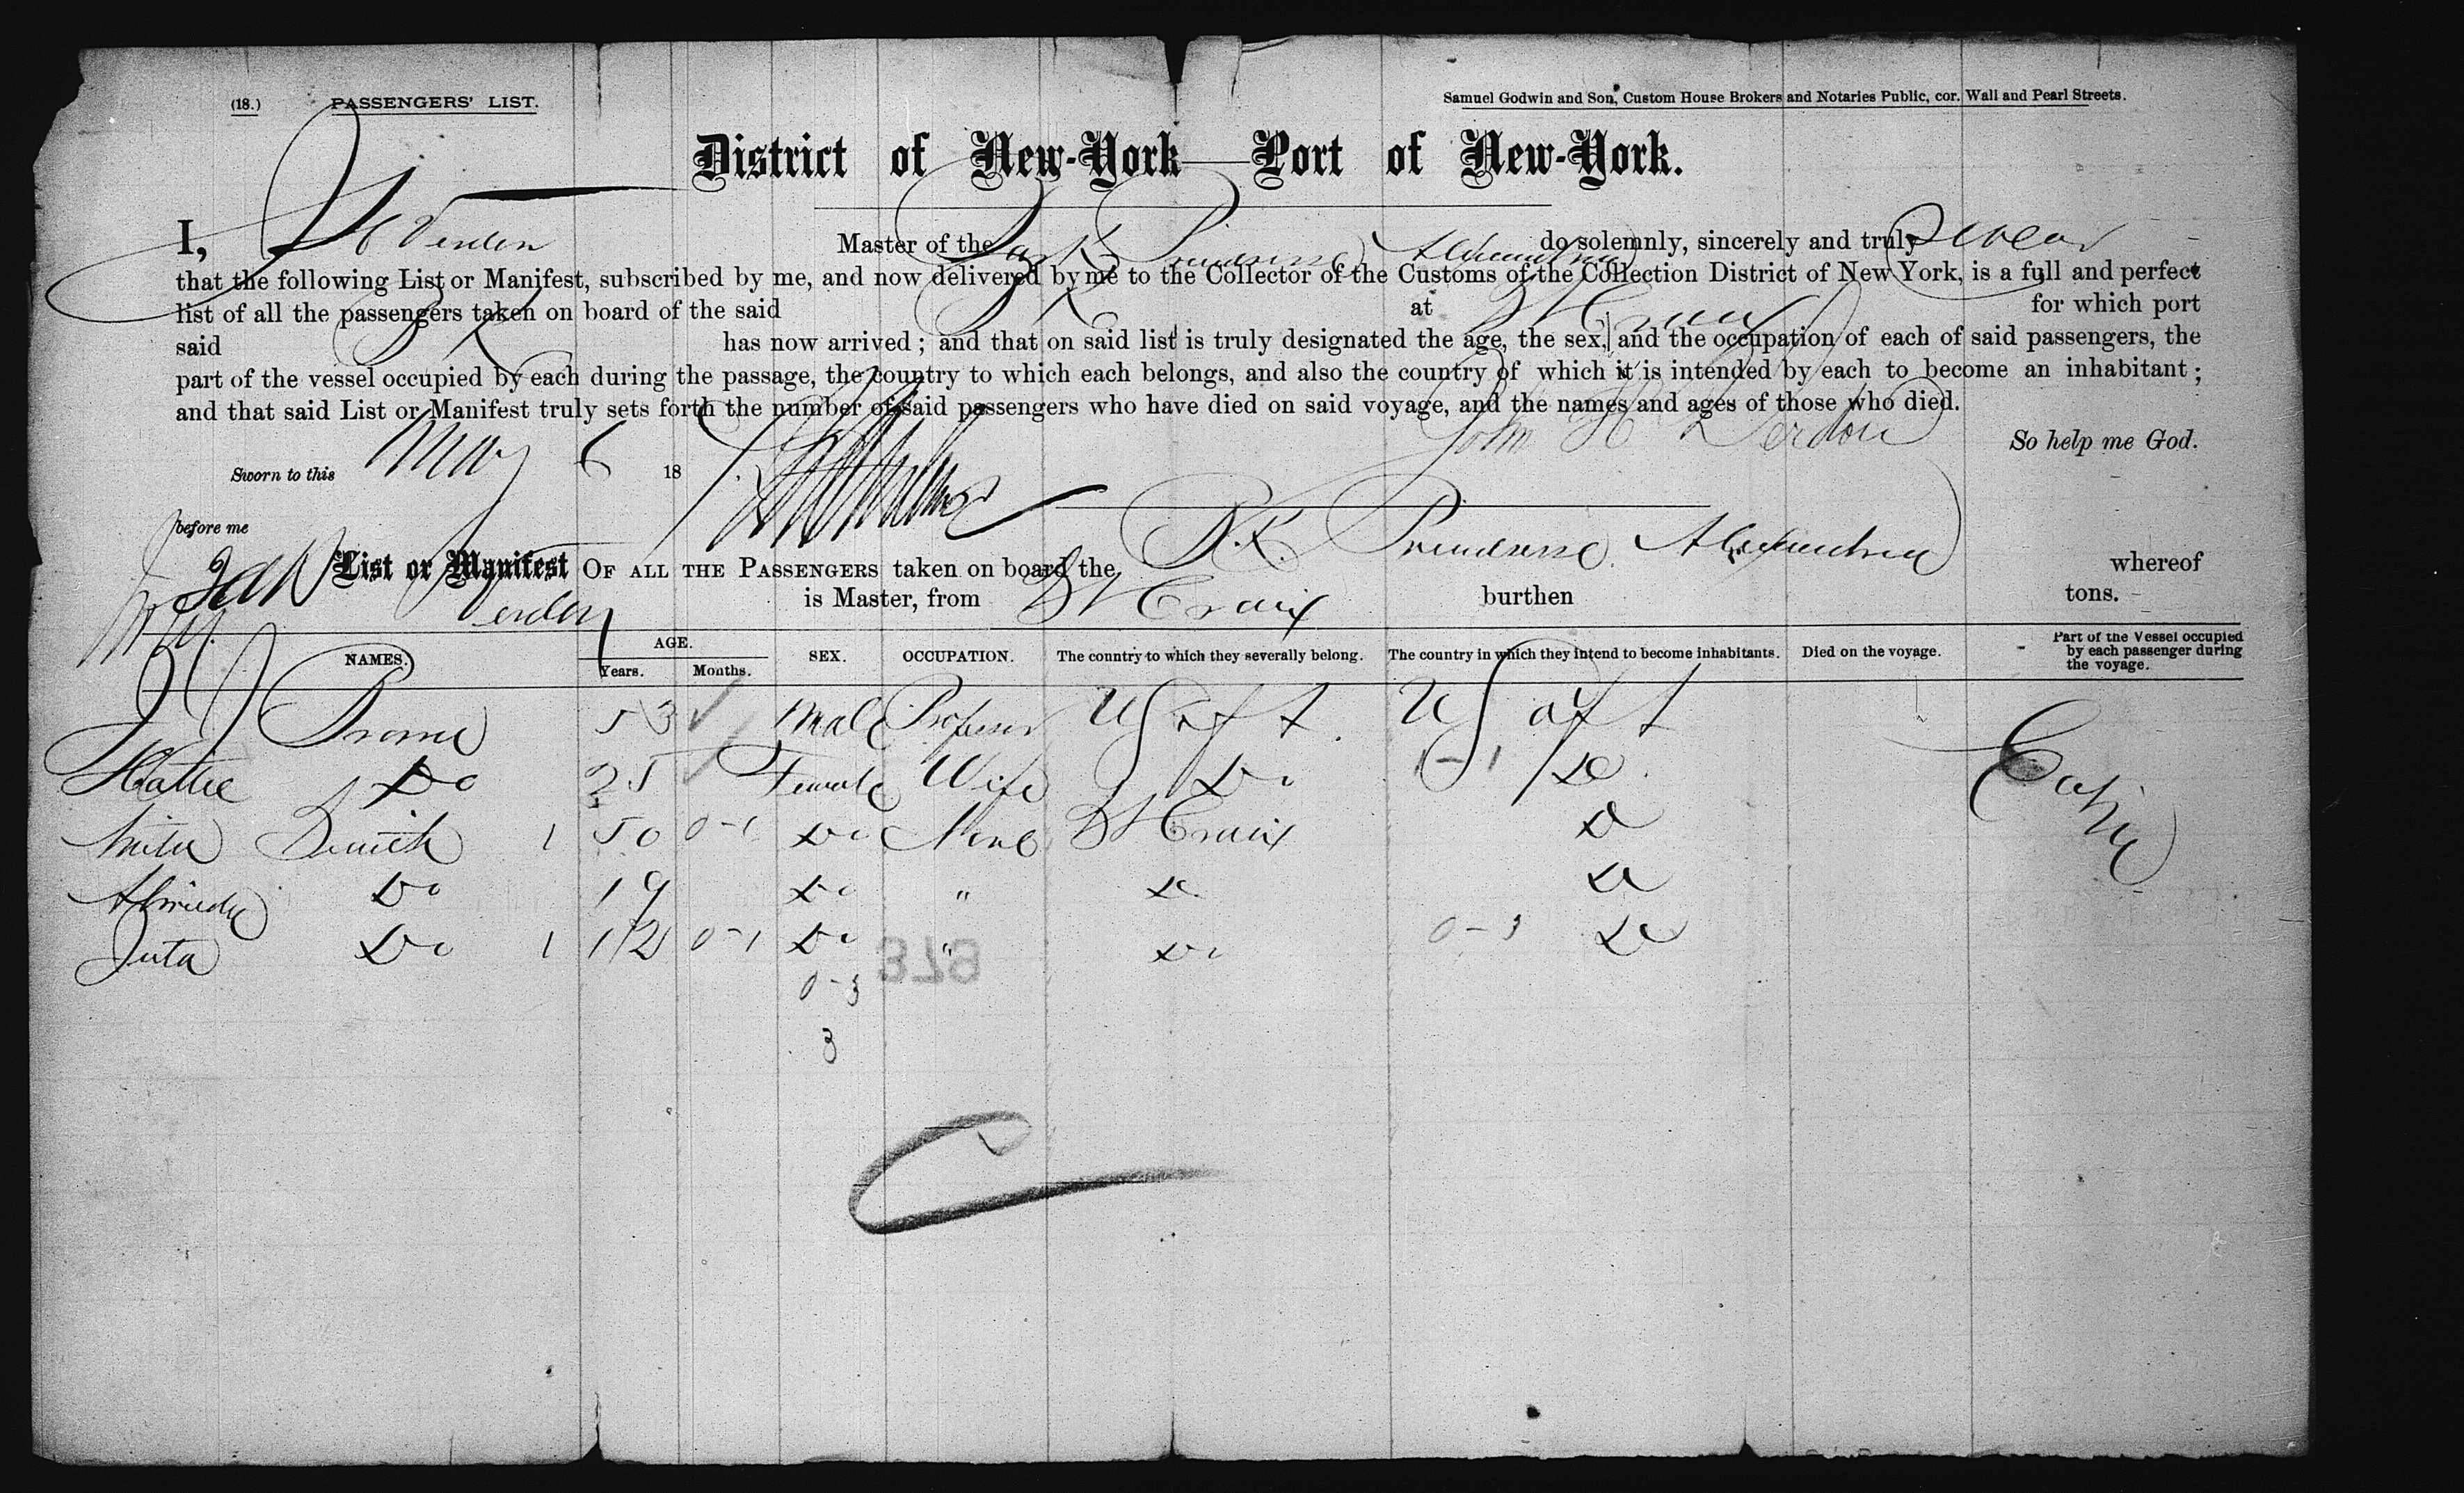 (18.) PASSENGERS' LIST. Samuel Godwin and Son, Custom House Brokers and Notaries Public, cor. Wall and Pearl Streets.
District of New-York—Port of New-York.
I, Verden Master of the Bark Prindsesse Alexandra do solemnly, sincerely and truly swear
that the following List or Manifest, subscribed by me, and now delivered by me to the Collector of the Customs of the Collection District of New York, is a full and perfect
list of all the passengers taken on board of the said BK at St Croix for which port
said BK has now arrived; and that on said list is truly designated the age, the sex, and the occupation of each of said passengers, the
part of the vessel occupied by each during the passage, the country to which each belongs, and also the country of which it is intended by each to become an inhabitant;
and that said List or Manifest truly sets forth the number of said passengers who have died on said voyage, and the names and ages of those who died.
John H Verdon So help me God.
Sworn to this May 6 18
before me
List or Manifest OF ALL THE PASSENGERS taken on board the B.K. Prindsesse Alexandra whereof
Verden is Master, from St Croix burthen tons.
NAMES. AGE. Years. Months. SEX. OCCUPATION. The country to which they severally belong. The country in which they intend to become inhabitants. Died on the voyage. Part of the Vessel occupied by each passenger during the voyage.
53 Male Professor U S of A U S of A Cabin
Hattie Do 25 Female Wife Do 1-1 Do
1 50 0-1 Do None St Croix Do
Do 19 Do " Do Do
Juta Do 1 12 0-1 Do " Do 0-3 Do
0-3 379
3